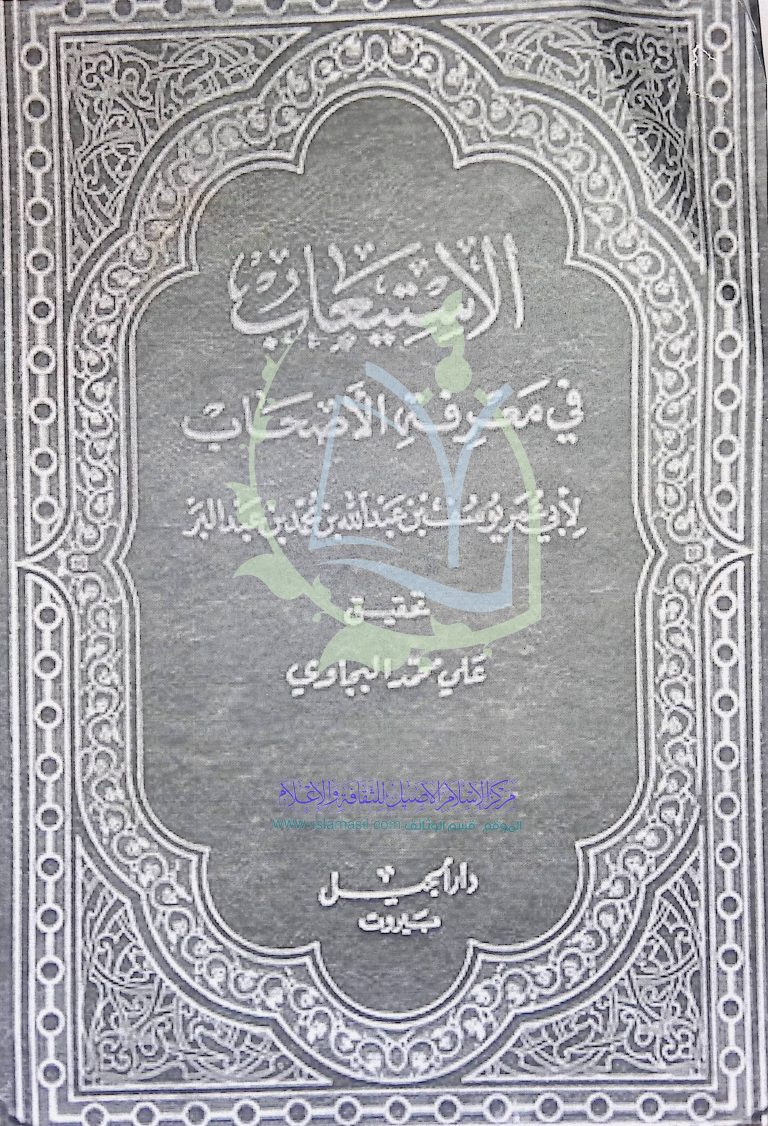 الاستيعاب
في معرفة الأصحاب
لأبي عمر يوسف بن عبد الله بن محمد بن عبد البر
تحقيق
علي محمد البجاوي
مركز الإسلام الأصيل للثقافة والإعلام
الموقع: قسم الوثائق www.islamasil.com
دار الجيل
بيروت